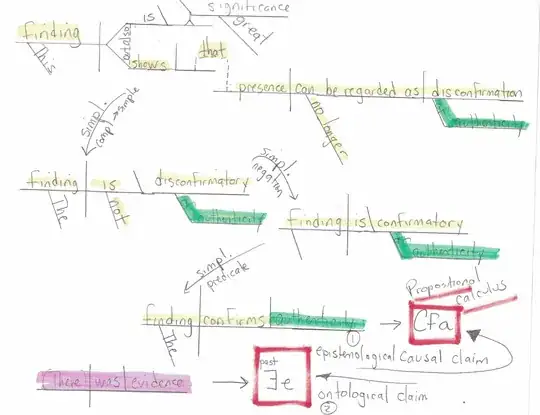 is \ significance
great
finding
This
and/also
shows
that
presence can be regarded as disconfirmation
no longer
of
authenticity
simpl.
compl → simple
finding is \ disconfirmatory
The
not
of
authenticity
simpl.
negation
finding is \ confirmatory
of
authenticity
simpl.
predicate
finding confirms authenticity
The
①
→
Cfa
Propositional
calculus
epistemological causal claim
(There) was evidence
→
past
∃e
ontological claim
②